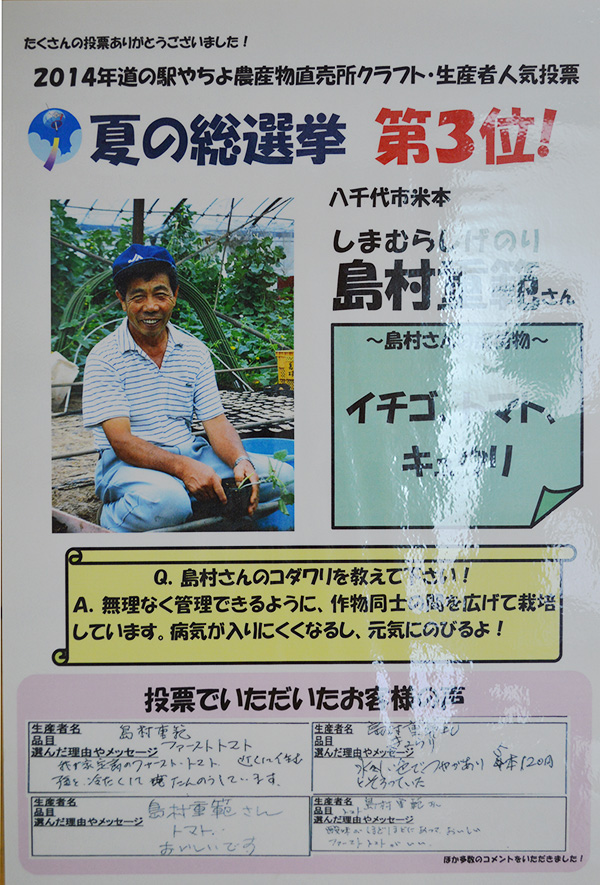 たくさんの投票ありがとうございました！
2014年道の駅やちよ農産物直売所クラフト・生産者人気投票
夏の総選挙 第3位！
八千代市米本
しまむらしげのり
島村重範さん
〜島村さん 物〜
イチゴ、トマト、
キュウリ
Q. 島村さんのコダワリを教えて下さい！
A. 無理なく管理できるように、作物同士の間を広げて栽培
しています。病気が入りにくくなるし、元気にのびるよ！
投票でいただいたお客様の声
生産者名 島村重範
品目 ファーストトマト
選んだ理由やメッセージ
我が家定番のファーストトマト
冷たくして
たんのうしています。
生産者名 島村重範
品目 きゅうり
選んだ理由やメッセージ
色でつやがあり 1本120円
とそろっていた
生産者名 島村重範さん
品目 トマト
選んだ理由やメッセージ
おいしいです
生産者名 島村重範
品目 トマト
選んだ理由やメッセージ
ほどほどにあっておいしい
ファーストトマトがいい
ほか多数のコメントをいただきました！